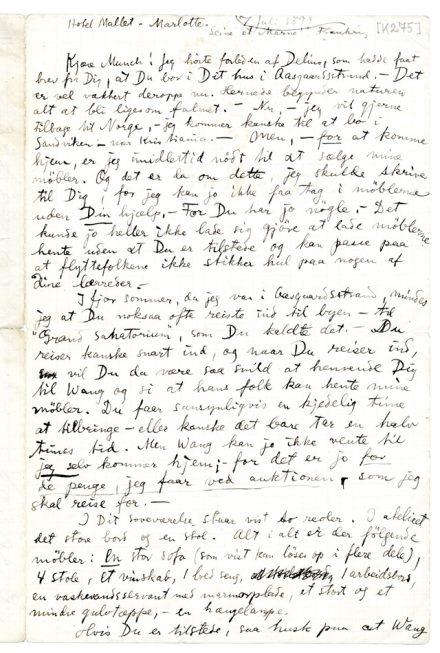 Hotel Mallet - Marlotte.
7 Juli 1899
Seine et Marne Frankrig
[K275]
Kjære Munch! Jeg hørte forleden af Delius, som havde faat
brev fra Dig, at Du bor i Dit hus i Aasgaardsstrand. - Det
er vel vakkert deroppe nu. Hernede begynder naturen
alt at bli ligesom falmet. - Nu, - jeg vil gjerne
tilbage til Norge, - jeg kommer kanske til at bo i
Sandviken - nær Kristiania. - Men, - for at komme
hjem, er jeg imidlertid nödt til at sælge mine
möbler. Og det er da om dette, jeg skulde skrive
til Dig, for jeg kan jo ikke faa tag i möblerne
uden Din hjælp, - For Du har jo nögle, - Det
kunde jo heller ikke lade sig gjöre at lade möblerne
hente uden at Du er tilstede og kan passe paa
at flyttefolkene ikke stikker hul paa nogen af
dine lærreder. -
I fjor sommer, da jeg var i Aasgaardsstrand, mindes
jeg at Du noksaa ofte reiste ind til byen - til
"Grand Sanatorium", som Du kaldte det. - Du
reiser kanske snart ind, og naar Du reiser ind,
vil Du da være saa snild at henvende Dig
til Wang og si at hans folk kan hente mine
möbler. Du faar sansynligvis en kjedelig time
at tilbringe - eller kanske det bare tar en halv
times tid. Men Wang kan jo ikke vente til
jeg selv kommer hjem; - for det er jo for
de penge, jeg faar ved auktionen, som jeg
skal reise for. -
I Dit soveværelse staar vist to reoler. I atelieret
det store bord og en stol. Alt i alt er der fölgende
möbler: En stor sofa (som vist kan löses op i flere dele),
4 stole, Et vinskab, 1 bed seng, 1 arbeidsbord,
en vaskevandsservant med marmorplade, et stort og et
mindre gulvtæppe, - en hængelampe.
Hvis Du er tilstede, saa husk paa at Wang